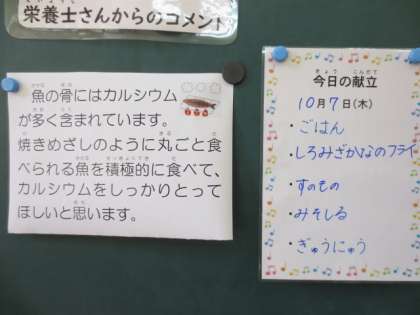 栄養士さんからのコメント
魚の骨にはカルシウム
が多く含まれています。
焼きめざしのように丸ごと食
べられる魚を積極的に食べて、
カルシウムをしっかりとって
ほしいと思います。
今日の献立
10月7日(木)
・ごはん
・しろみざかなのフライ
・すのもの
・みそしる
・ぎゅうにゅう